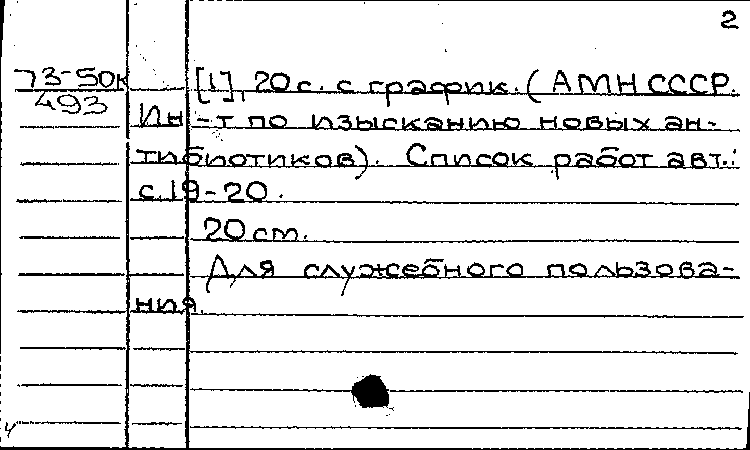 2
73-50к
493
[1], 20 с. с график. (АМН СССР.
Ин-т по изысканию новых ан-
тибиотиков). Список работ авт.:
с. 19-20.
20 см.
Для служебного пользова-
ния.